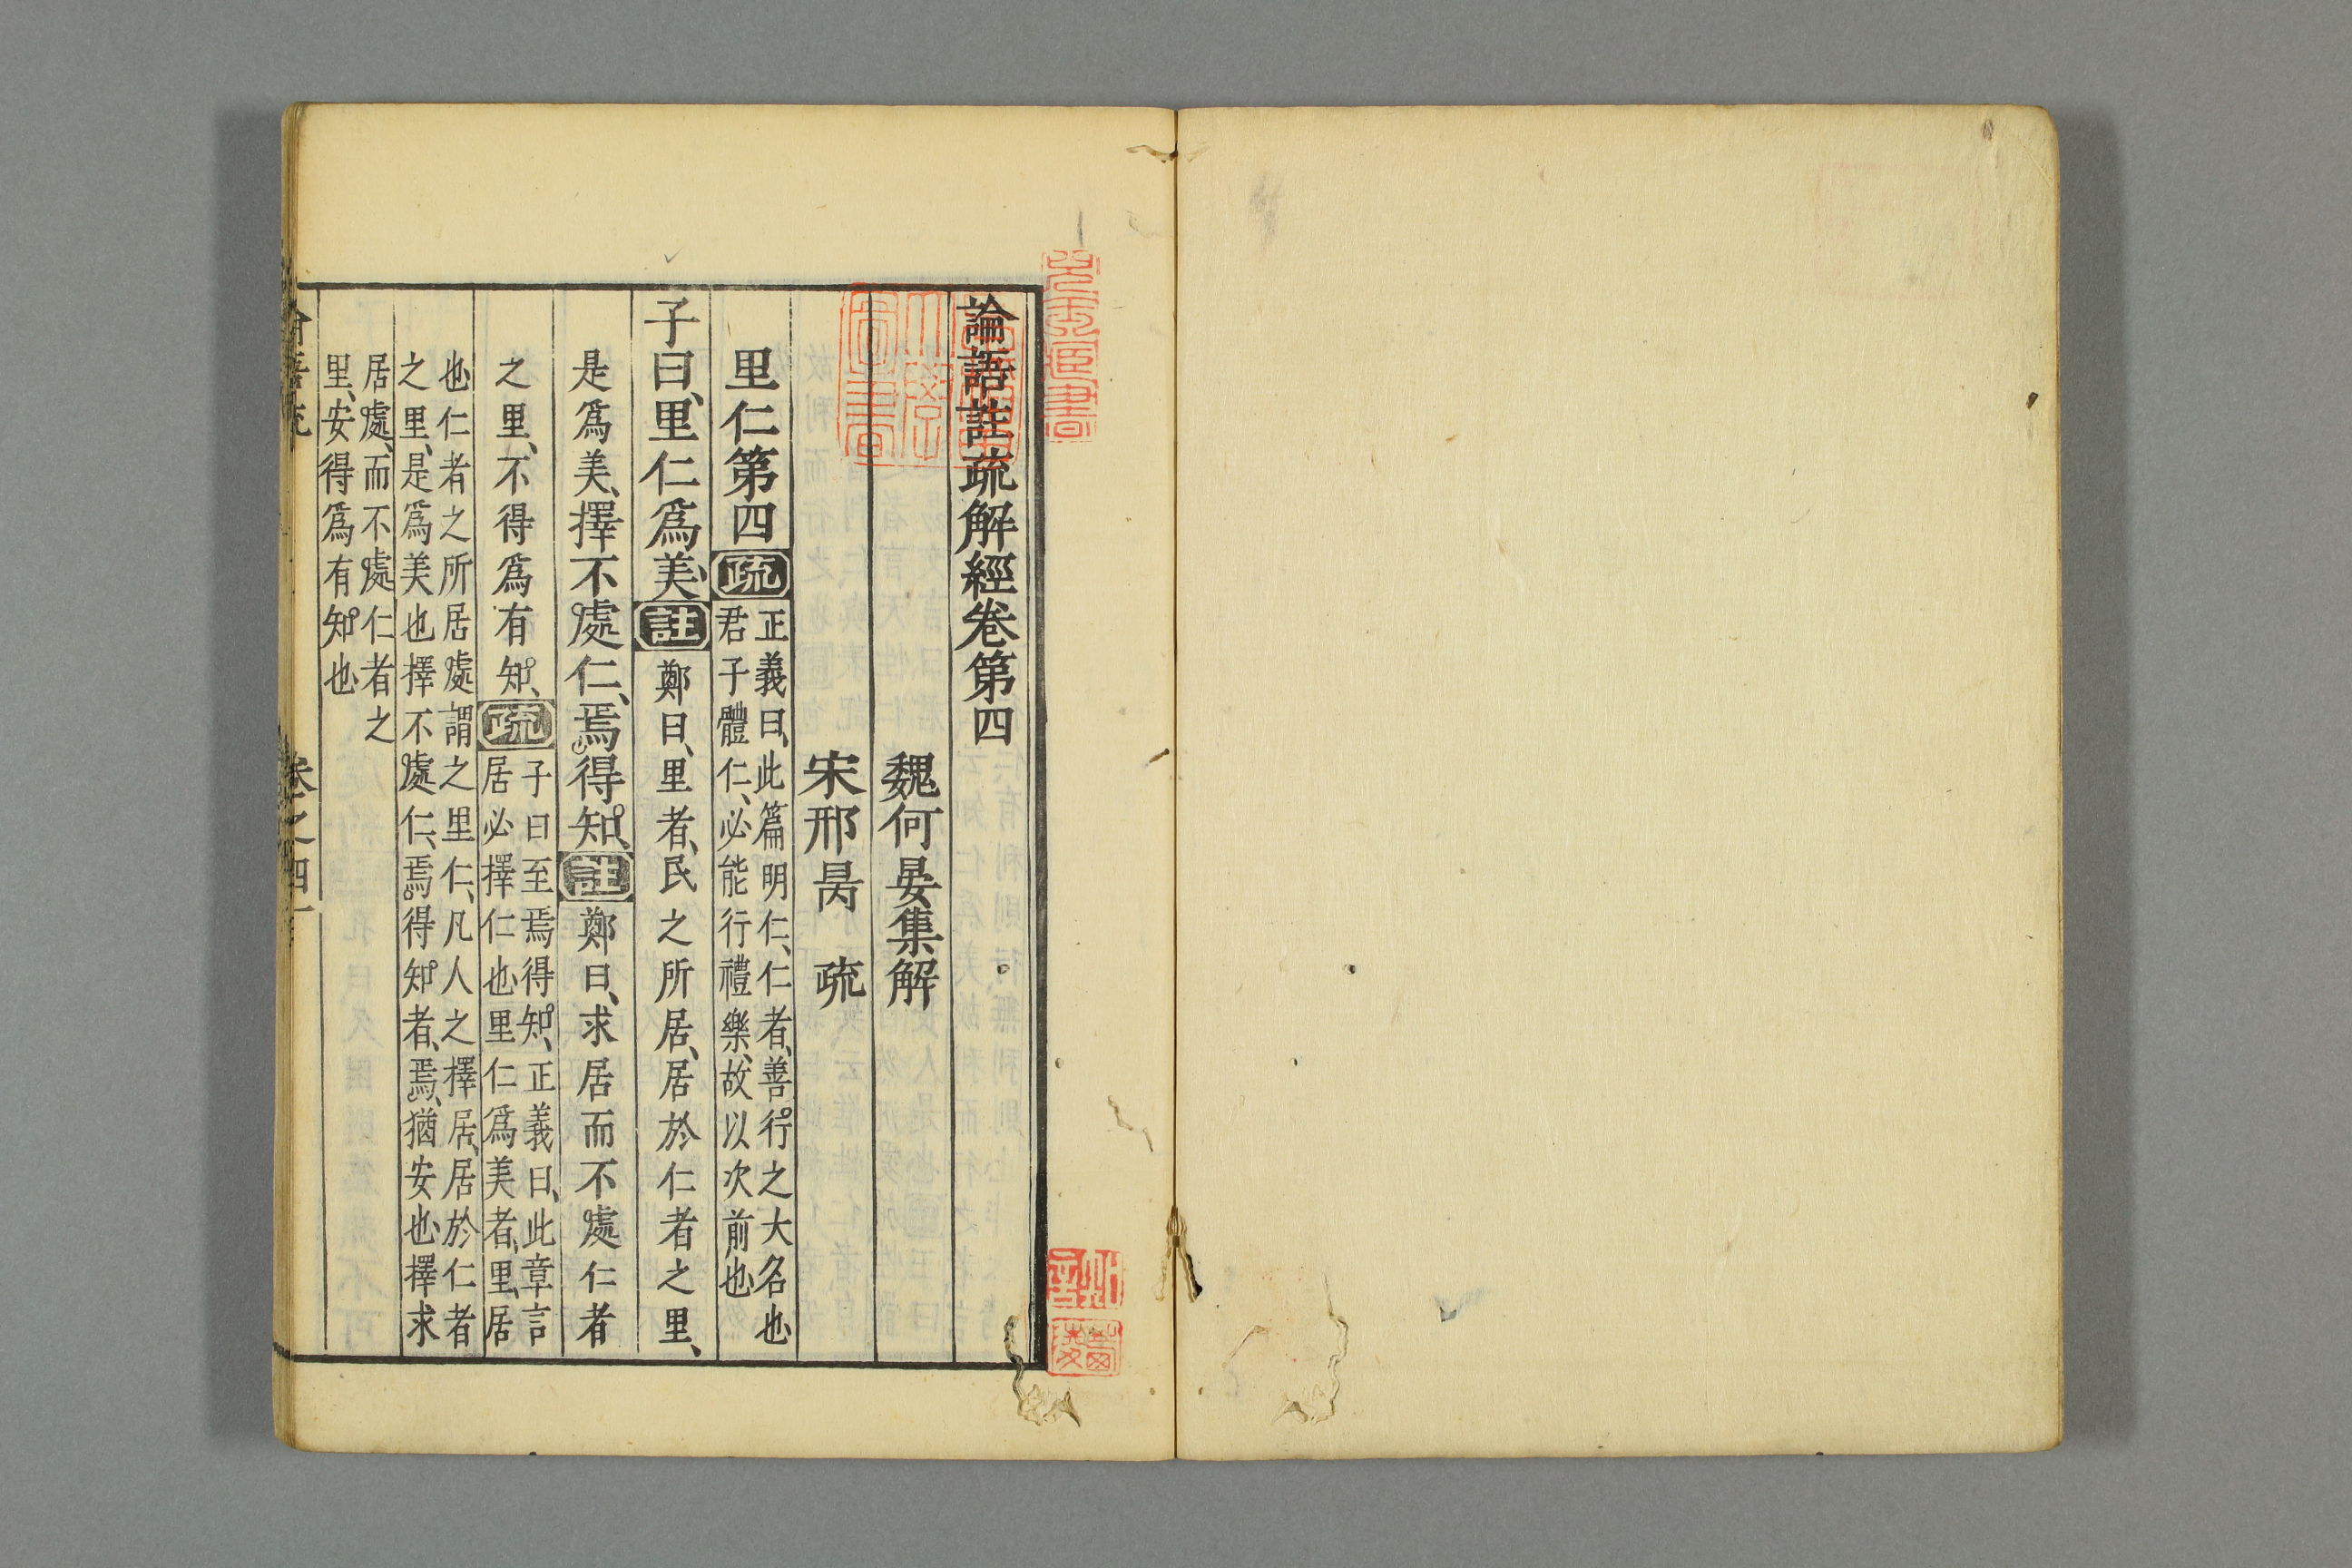 論語註疏解經卷第四
魏何晏集解
宋邢昺 疏
里仁第四 疏 正義曰、此篇明仁、仁者、善行之大名也
君子體仁、必能行禮樂、故以次前也
子曰、里仁爲美、註 鄭曰、里者、民之所居、居於仁者之里、
是爲美、擇不處仁、焉得知、註 鄭曰、求居而不處仁者
之里、不得爲有知、疏 子曰至焉得知、正義曰、此章言
居必擇仁也里仁爲美者、里、居
也仁者之所居處謂之里仁、凡人之擇居、居於仁者
之里、是爲美也擇不處仁、焉得知者、焉、猶安也擇求
居處、而不處仁者之
里、安得爲有知也
卷之四
圖書